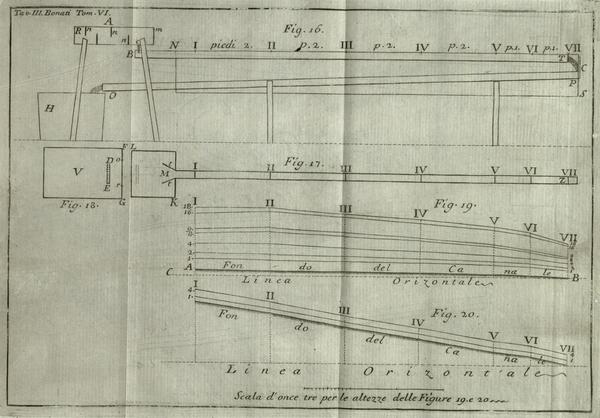 Tav. III. Bonati Tom. VI.
Fig. 16.
A
R n n n m
B
N I piedi 2. II p. 2. III p. 2. IV p. 2. V p. 1. VI p. 1. VII
T
C
P
S
O
H
Fig. 17.
F L
V
D o
E r
M
t
t
G
K
I II III IV V VI VII
Z
Fig. 18.
Fig. 19.
I II III IV V VI VII
18
16
A Fon do del Ca na le B
C
Linea Orizontale
Fig. 20.
I II III IV V VI VII
4
1
Fon do del Ca na le
Linea Orizontale
Scala d'once tre per le altezze delle Figure 19. e 20.